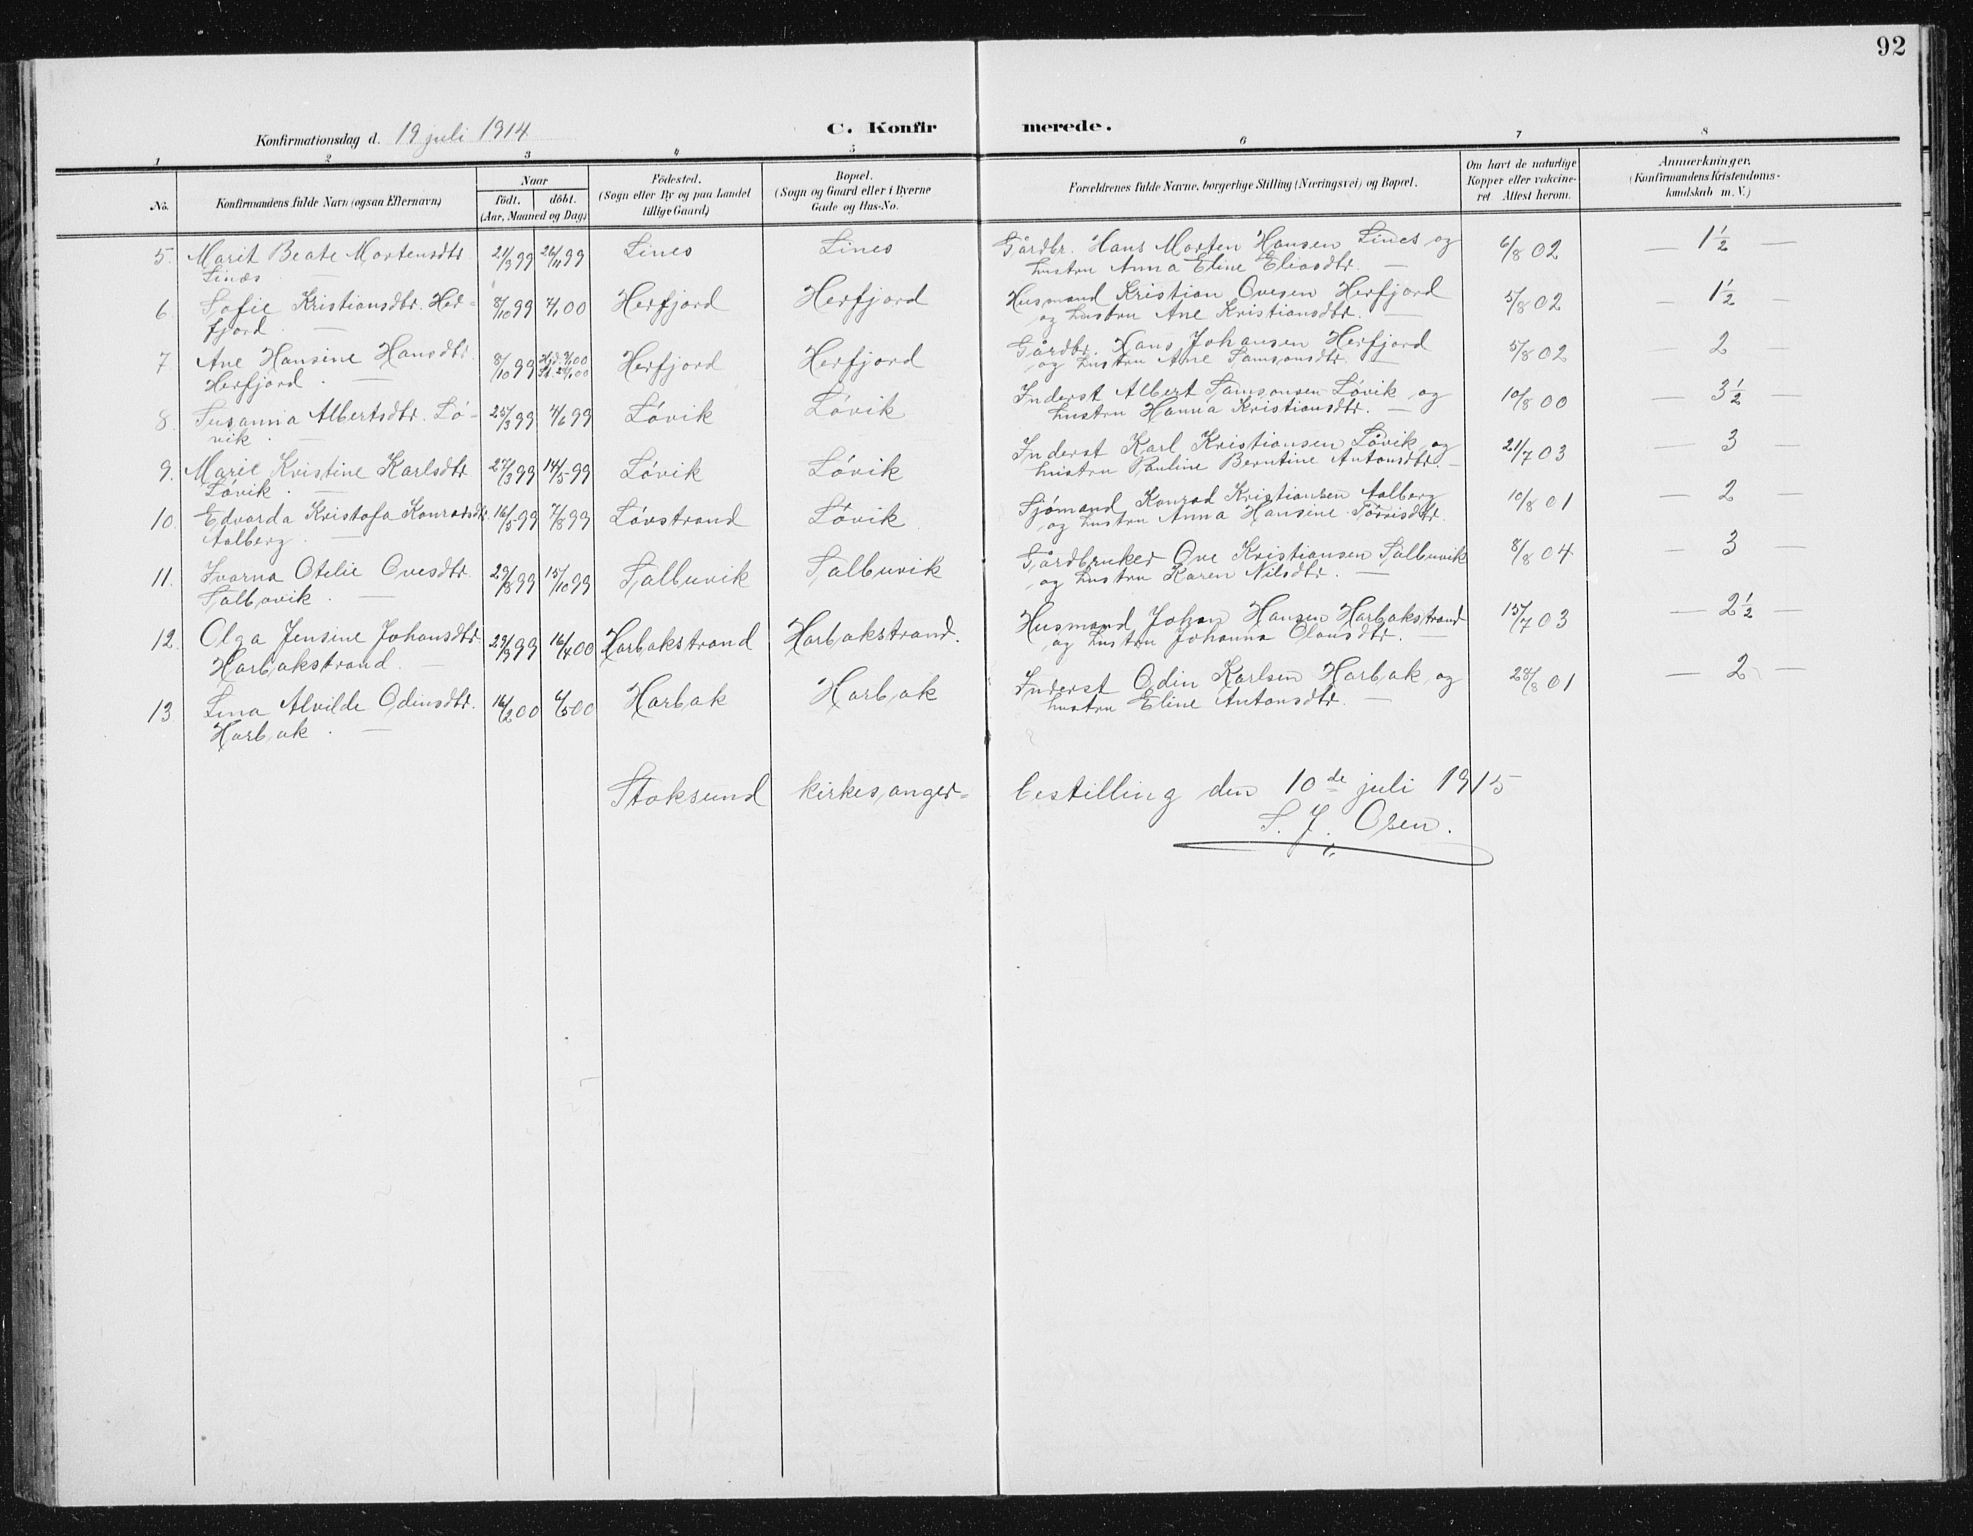 92
Konfirmationsdag d. 19 juli 1914
C. Konfirmerede.
1 2 3 4 5 6 7 8
No.
Konfirmandens fulde Navn (ogsaa Efternavn)
Naar
født. døbt.
(Aar, Maaned og Dag)
Fødested.
(Sogn eller By og paa Landet
tillige Gaard)
Bopæl.
(Sogn og Gaard eller i Byerne
Gade og Hus-No.
Forældrenes fulde Navne, borgerlige Stilling (Næringsvei) og Bopæl.
Om havt de naturlige
Kopper eller vakcine-
ret Attest herom.
Anmærkninger.
(Konfirmandens Kristendoms-
kundskab m. V.)
5. Marit Beate Mortensdtr. 21/3 99 26/11 99 Lines Lines Gårdbr. Hans Morten Hansen Lines og 6/8 02 — 1 1/2 —
Linæs hustru Anna Eline Eliasdtr. —
6 Sofie Kristiansdtr. Her- 8/10 99 7/1 00 Herfjord Herfjord Husmand Kristian Ovesen Herfjord 5/8 02 — 1 1/2 —
fjord. — og hustru Ane Kristiansdtr. —
7 Ane Hansine Hansdtr. 8/10 99 Herfjord Herfjord Gårdbr. Hans Johansen Herfjord 5/8 02 — 2 —
Herfjord. — og hustru Ane Samsonsdtr. —
8. Susanna Albertsdtr. Lø- 25/3 99 4/6 99 Løvik Løvik Inderst Albert Samsonsen Løvik og 10/8 00 — 3 1/2 —
vik. — hustru Hanna Kristiansdtr. —
9. Marie Kristine Karlsdtr. 27/3 99 14/5 99 Løvik Løvik Inderst Karl Kristiansen Løvik og 21/7 03 — 3 —
Løvik. — hustru Pauline Berntine Antonsdtr. —
10. Edvarda Kristofa Konradsdtr. 16/5 99 7/8 99 Løvstrand Løvik Sjømand Konrad Kristiansen Aalberg 10/8 01 — 2 —
Aalberg. — og hustru Anna Hansine
11. Ivarna Otelie Ovesdtr. 29/8 99 15/10 99 Salbuvik Salbuvik Gårdbruker Ove Kristiansen Salbuvik 8/8 04 — 3 —
Salbuvik. — og hustru Karen Nilsdtr. —
12. Olga Jensine Johansdtr. 29/9 99 16/4 00 Harbakstrand Harbakstrand. Husmand Johan Hansen Harbakstrand 15/7 03 — 2 1/2 —
Harbakstrand. — og hustru Johanna Olausdtr. —
13 Lina Alvilde Odinsdtr. 16/2 00 6/5 00 Harbak Harbak Inderst Odin Karlsen Harbak og 28/8 01 — 2 —
Harbak. — hustru Eline Antonsdtr. —
Stoksund kirkesanger= bestilling den 10de juli 1915
S. J. Osen.